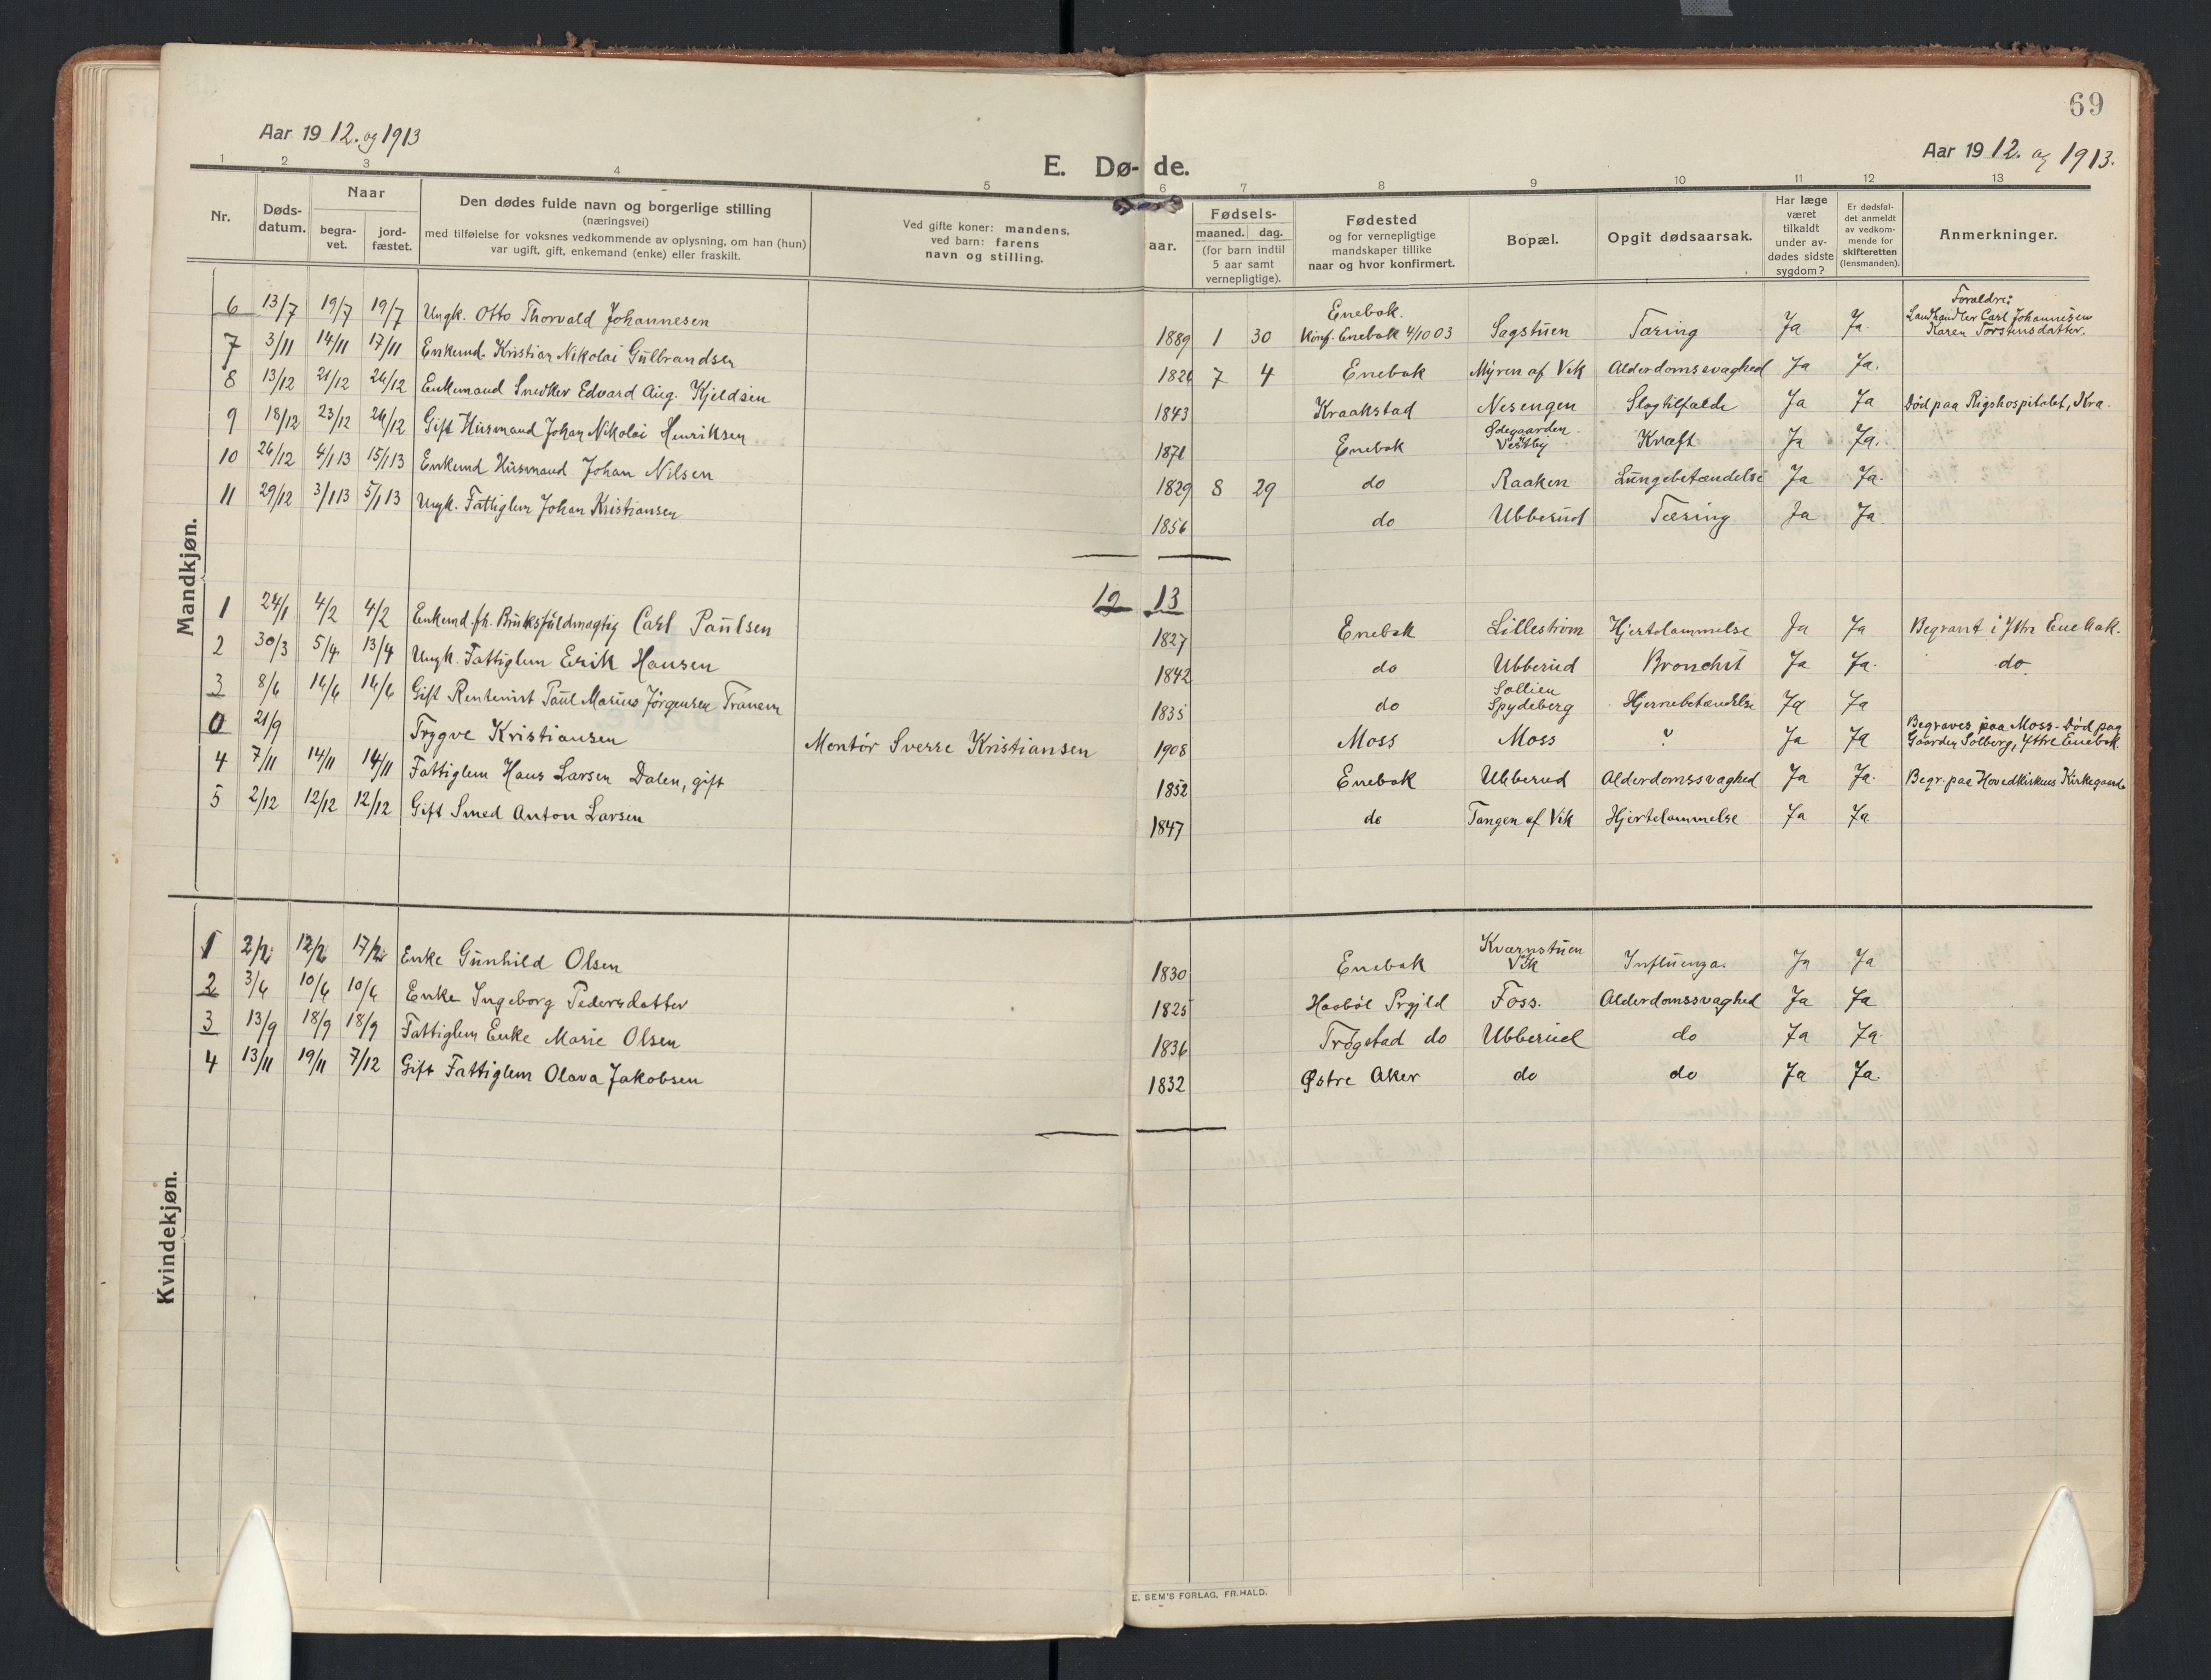 69
Aar 1912. og 1913
E. Dø- de.
Aar 1912. og 1913.
1 2 3 4 5 6 7 8 9 10 11 12 13
Nr.
Døds-
datum.
Naar
begra-
vet.
jord-
fæstet.
Den dødes fulde navn og borgerlige stilling
(næringsvei)
med tilføielse for voksnes vedkommende av oplysning, om han (hun)
var ugift, gift, enkemand (enke) eller fraskilt.
Ved gifte koner: mandens,
ved barn: farens
navn og stilling.
aar.
Fødsels-
maaned. dag.
(for barn indtil
5 aar samt
vernepligtige).
Fødested
og for vernepligtige
mandskaper tillike
naar og hvor konfirmert.
Bopæl.
Opgit dødsaarsak.
Har læge
været
tilkaldt
under av-
dødes sidste
sygdom?
Er dødsfal-
det anmeldt
av vedkom-
mende for
skifteretten
(lensmanden).
Anmerkninger.
Mandkjøn.
6 13/7 19/7 19/7 Ungk. Otto Thorvald Johannesen 1889 1 30 Enebak. Konf. Enebak 4/10 03 Sagstuen Tæring Ja Ja. Forældre: Landhandler Carl Johannesen Karen Torstensdatter.
7 3/11 14/11 17/11 Enkemd. Kristian Nikolai Gulbrandsen 1826 7 4 Enebak Myren af Vik Alderdomssvaghed Ja Ja.
8 13/12 21/12 26/12 Enkemand Snedker Edvard Aug. Kjeldsen 1843 Kraakstad Nesengen Slagtilfælde Ja Ja Død paa Rigshospitalet, Kra.
9 18/12 23/12 26/12 Gift Husmand Johan Nikolai Henriksen 1871 Enebak Ødegaarden Vestby Kræft Ja Ja.
10 26/12 4/1 13 15/1 13 Enkemd Husmand Johan Nilsen 1829 8 29 do Raaken Lungebetændelse Ja Ja.
11 29/12 3/1 13 5/1 13 Ungk. Fattiglem Johan Kristiansen 1856 do Ubberud Tæring Ja Ja.
19 13
1 24/1 4/2 4/2 Enkemd. fh. Bruksfuldmægtig Carl Paulsen 1827 Enebak Lillestrøm Hjertelammelse Ja Ja Begravet i Ytre Enebak.
2 30/3 5/4 13/4 Ungk. Fattiglem Erik Hansen 1842 do Ubberud Bronchit Ja Ja. do.
3 8/6 16/6 16/6 Gift Rentenist Paul Marius Jørgensen Tranem 1835 do Sollien Spydeberg Hjernebetændelse Ja Ja
0 21/9 Trygve Kristiansen Montør Sverre Kristiansen 1908 Moss Moss ? Ja Ja Begraves paa Moss. Død paa Gaarden Solberg, Ytre Enebak.
4 7/11 14/11 14/11 Fattiglem Hans Larsen Dalen, gift 1852 Enebak Ubberud Alderdomssvaghed Ja Ja. Begr. paa Hovedkirkens Kirkegaard
5 2/12 12/12 12/12 Gift Smed Anton Larsen 1847 do Tangen af Vik Hjertelammelse Ja Ja
Kvindekjøn.
1 2/2 12/2 17/2 Enke Gunhild Olsen 1830 Enebak Kværnstuen Vik Influenza. Ja Ja
2 3/6 10/6 10/6 Enke Ingeborg Pedersdatter 1825 Haabøl Prgjld Foss. Alderdomssvaghed Ja Ja
3 13/9 18/9 18/9 Fattiglem Enke Marie Olsen 1836 Trøgstad do Ubberud do Ja Ja.
4 13/11 19/11 7/12 Gift Fattiglem Olava Jakobsen 1832 Østre Aker do do Ja Ja.
E. SEM'S FORLAG, FR.HALD.